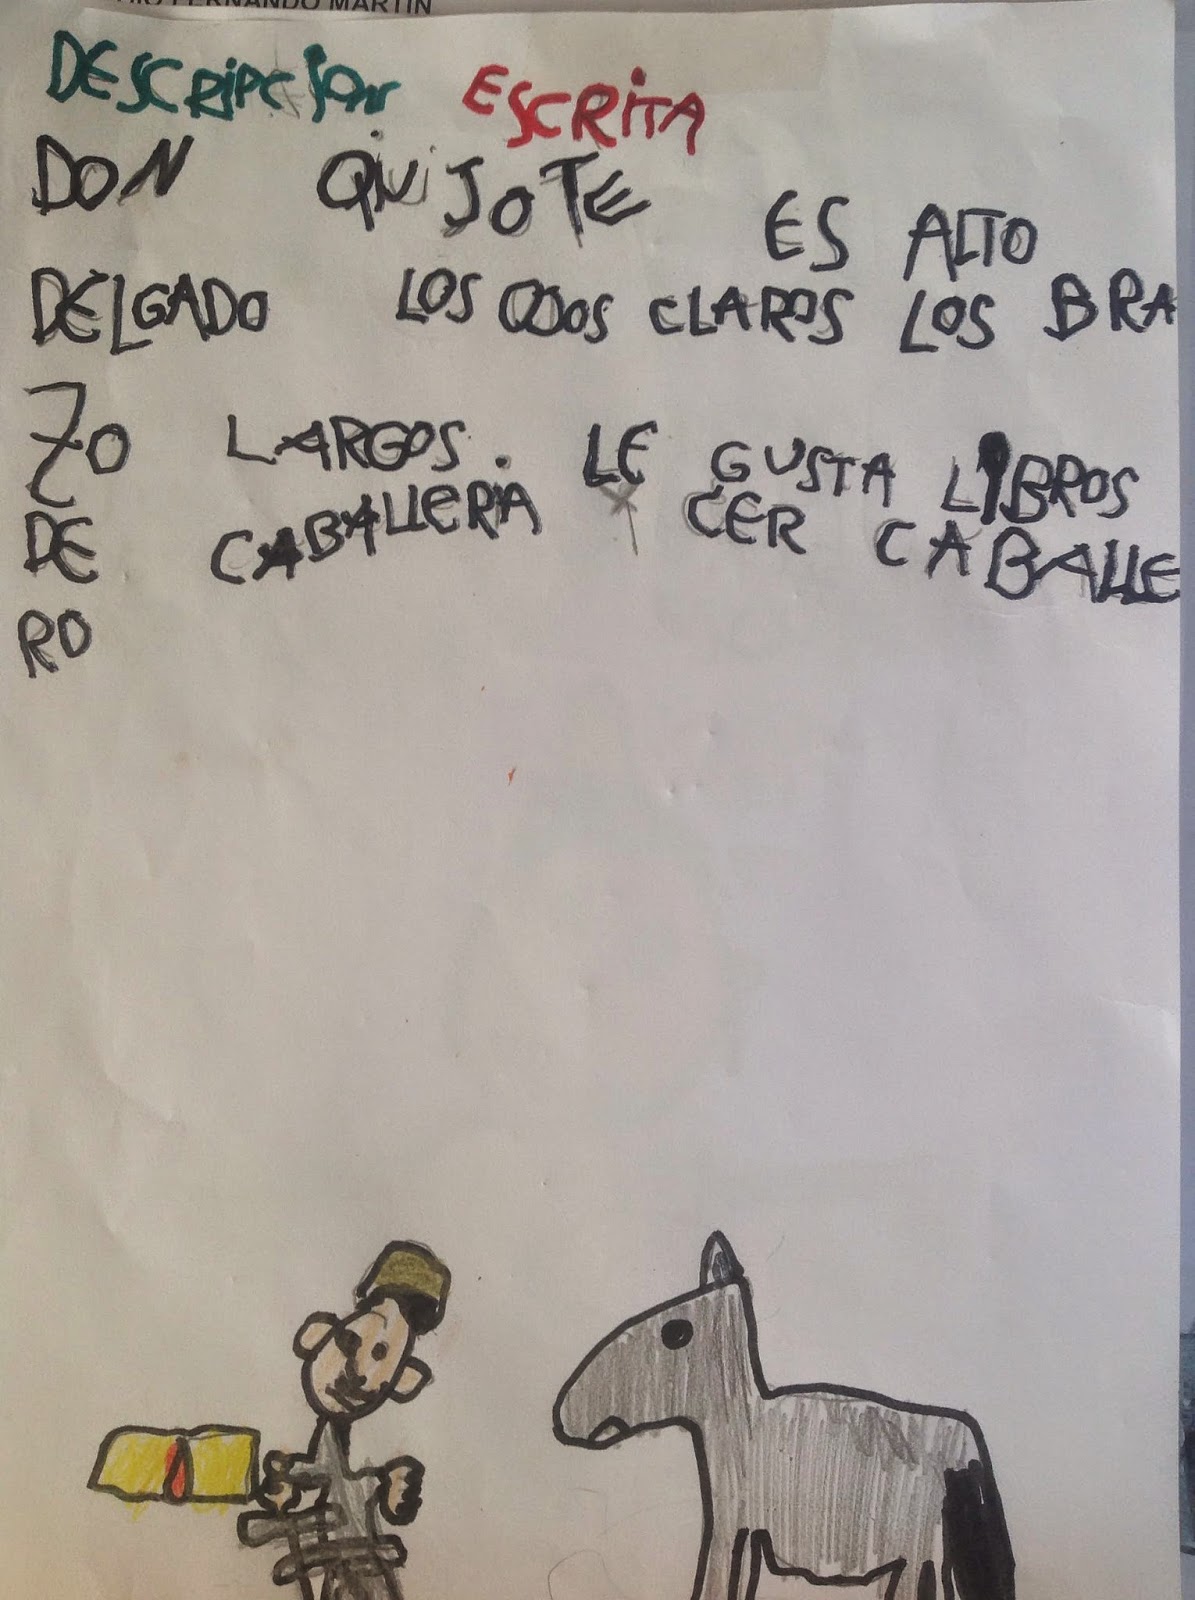 FERNANDO MARTIN
DESCRIPCION ESCRITA
DON QUIJOTE ES ALTO
DELGADO LOS OJOS CLAROS LOS BRA
ZO LARGOS. LE GUSTA LIBROS
DE CABALLERIA Y CER CABALLE
RO